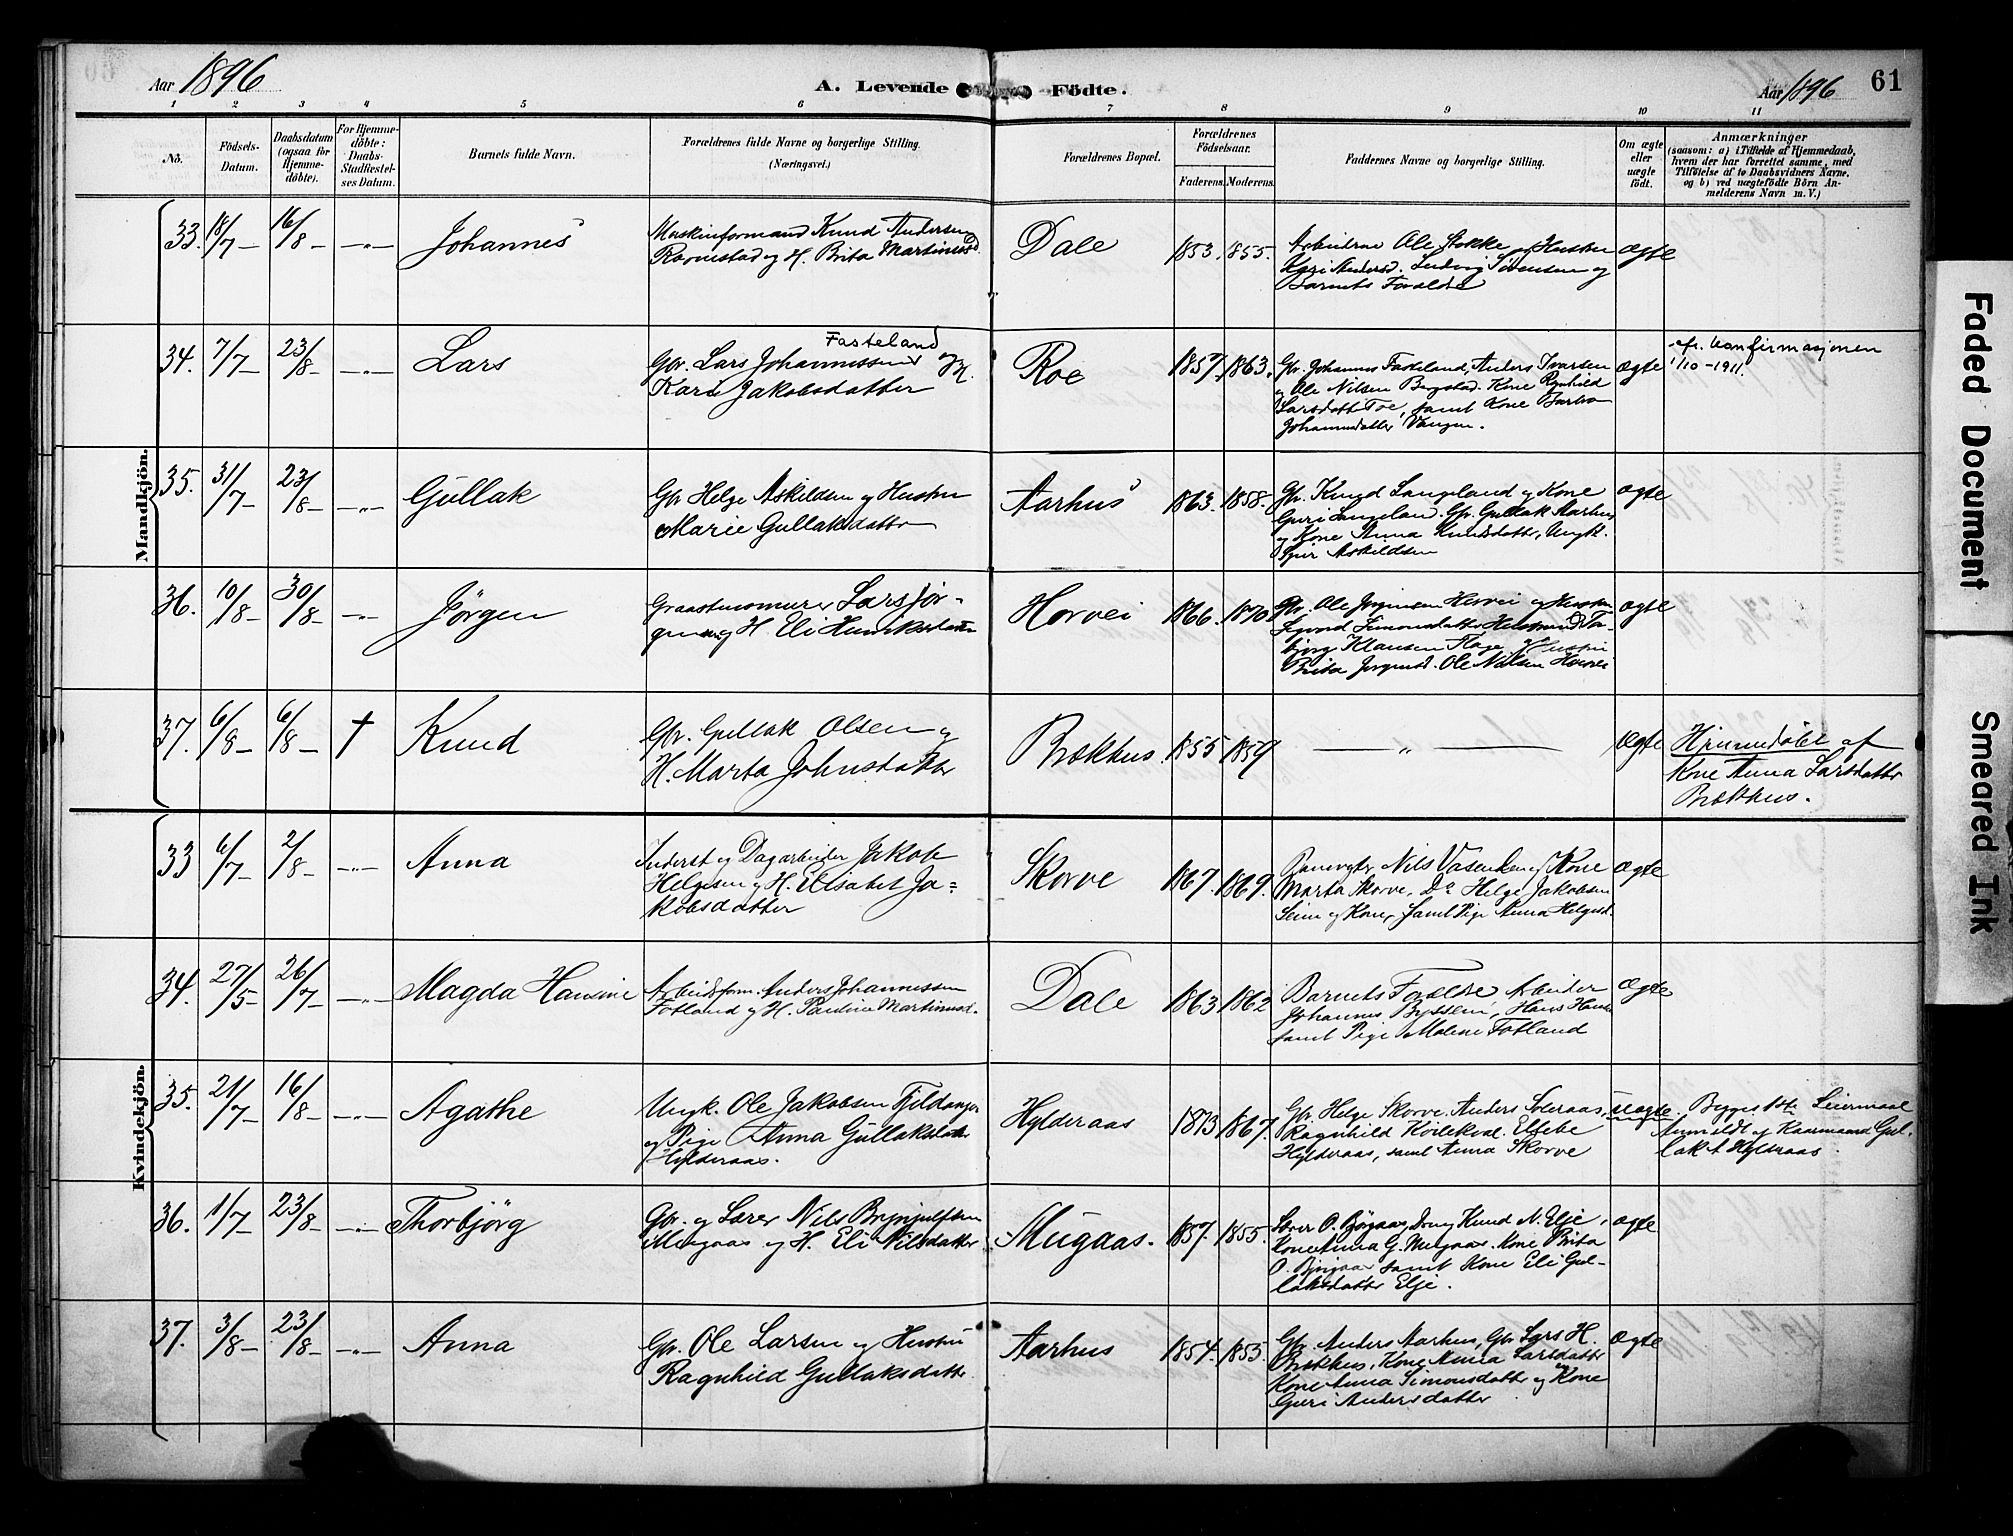 Aar 1896
A. Levende Födte.
Aar 1896
61
1 2 3 4 5 6 7 8 9 10 11
No.
Födsels-
Datum.
Daabsdatum
(ogsaa for
Hjemme-
döbte).
For Hjemme-
döbte:
Daabs-
Stadfæstel-
ses Datum.
Barnets fulde Navn.
Forældrenes fulde Navne og borgerlige Stilling.
(Næringsvei.)
Forældrenes Bopæl.
Forældrenes
Födselsaar.
Faderens. Moderens.
Faddernes Navne og borgerlige Stilling.
Om ægte
eller
uægte
födt.
Anmærkninger
(saasom: a) i Tilfælde af Hjemmedaab,
hvem der har forrettet samme, med
Tilföielse af to Daabsvidners Navne,
og b) ved uægtefödte Börn An-
melderens Navn m. V.)
Mandkjön.
33. 18/7 - 16/8 - -„- Johannes
Maskinformand Knud Andersen
Ravnestad og H. Brita Martinusd.
Dale 1853. 1855.
Arbeiderne Ole Stokke og Hustru
Kari Andersd. Ludvig Sörensen og
Barnets Forældre
Ægte
34. 7/7 - 23/8 - -„- Lars
Fasteland
Gbr. Lars Johannessen og H.
Kari Jakobsdatter
Roe 1857. 1863.
Gbr. Johannes Fasteland, Anders Ivarsen
og Ole Nilsen Bergstad. Kone Ragnhild
Larsdatter Foe, samt Kone Barbro
Johannesdatter Vangen.
Ægte
efr. konfirmasjonen
1/10 - 1911.
35. 31/7 - 23/8 - -„- Gullak
Gbr Helge Askildsen og Hustru
Marie Gullaksdatter
Aarhus 1863. 1858.
Gbr. Knud Langeland og Kone
Guri Langeland. Gbr. Gullak Aarhus
og Kone Anna Knudsdatter, Ungk.
Askildsen
Ægte
36. 10/8 - 30/8 - -„- Jörgen
Graastensmurer Lars Jör-
gensen og H. Eli Henriksdatter
Horvei 1866. 1870.
Gbr. Ole Jörgensen Horvei og Hustru
Simonsdatter
Klausen Hage og Hustru
Brita Jörgensd. Ole Nilsen Horvei
Ægte
37. 6/8 - 6/8 - † Knud
Gbr. Gullak Olsen og
H. Marta Johnsdatter
Brækhus. 1855 1859
— „ —
Ægte
Hjemmedöbt af
Kone Anna Larsdatter
Brækhus.
Kvindekjön.
33 6/7 - 2/8 - -„- Anna
Inderst og Dagarbeider Jakob
Helgesen og H. Elisabet Ja=
kobsdatter
Skorve 1867. 1869.
Nils Vasenden og Kone
Marta Skorve. Do Helge Jakobsen
Seim og Kone, samt Pige Anna Helgesd.
Ægte
34. 27/5 - 26/7 - -„- Magda Hansine
Arbeidsform. Anders Johannessen
Fotland og H. Pauline Martinusd.
Dale 1863 1862
Barnets Forældre, Arbeider
Johannes, Hans
samt Pige Malene Fotland
Ægte
35. 21/7 - 16/8 - -„- Agathe
Ungk. Ole Jakobsen
og Pige Anna Gullaksdatter
Hylderaas.
Hylderaas 1873 1867.
Gbr. Helge Skorve. Anders Soleraas,
Ragnhild Koilekval. Ellebe
Hylderaas, samt Anna Skorve
Uægte
Begges 1ste Leiermaal
Anmeldt af Kaarmand Gul-
lak A Hylderaas.
36. 1/7 - 23/8 - -„- Thorbjörg
Gbr. og Lærer Nils Brynjulfsen
Mugaas og H. Eli Nilsdatter
Mugaas. 1857. 1855.
Lærer O. Björgaas, Dreng Knud N. Elje,
Kone Anna G. Mugaas. Kone Brita
O. Björgaas samt Kone Eli Gul-
laksdatter Elje.
Ægte
37. 3/8 - 23/8 - -„- Anna
Gbr. Ole Larsen og Hustru
Ragnhild Gullaksdatter
Aarhus 1854. 1853.
Gbr. Anders Aarhus, Gbr Lars H.
Brækhus, Kone Anna Larsdatter
Kone Anna Simonsdatter og Kone
Guri Andersdatter
Ægte
Faded Document
Smeared Ink